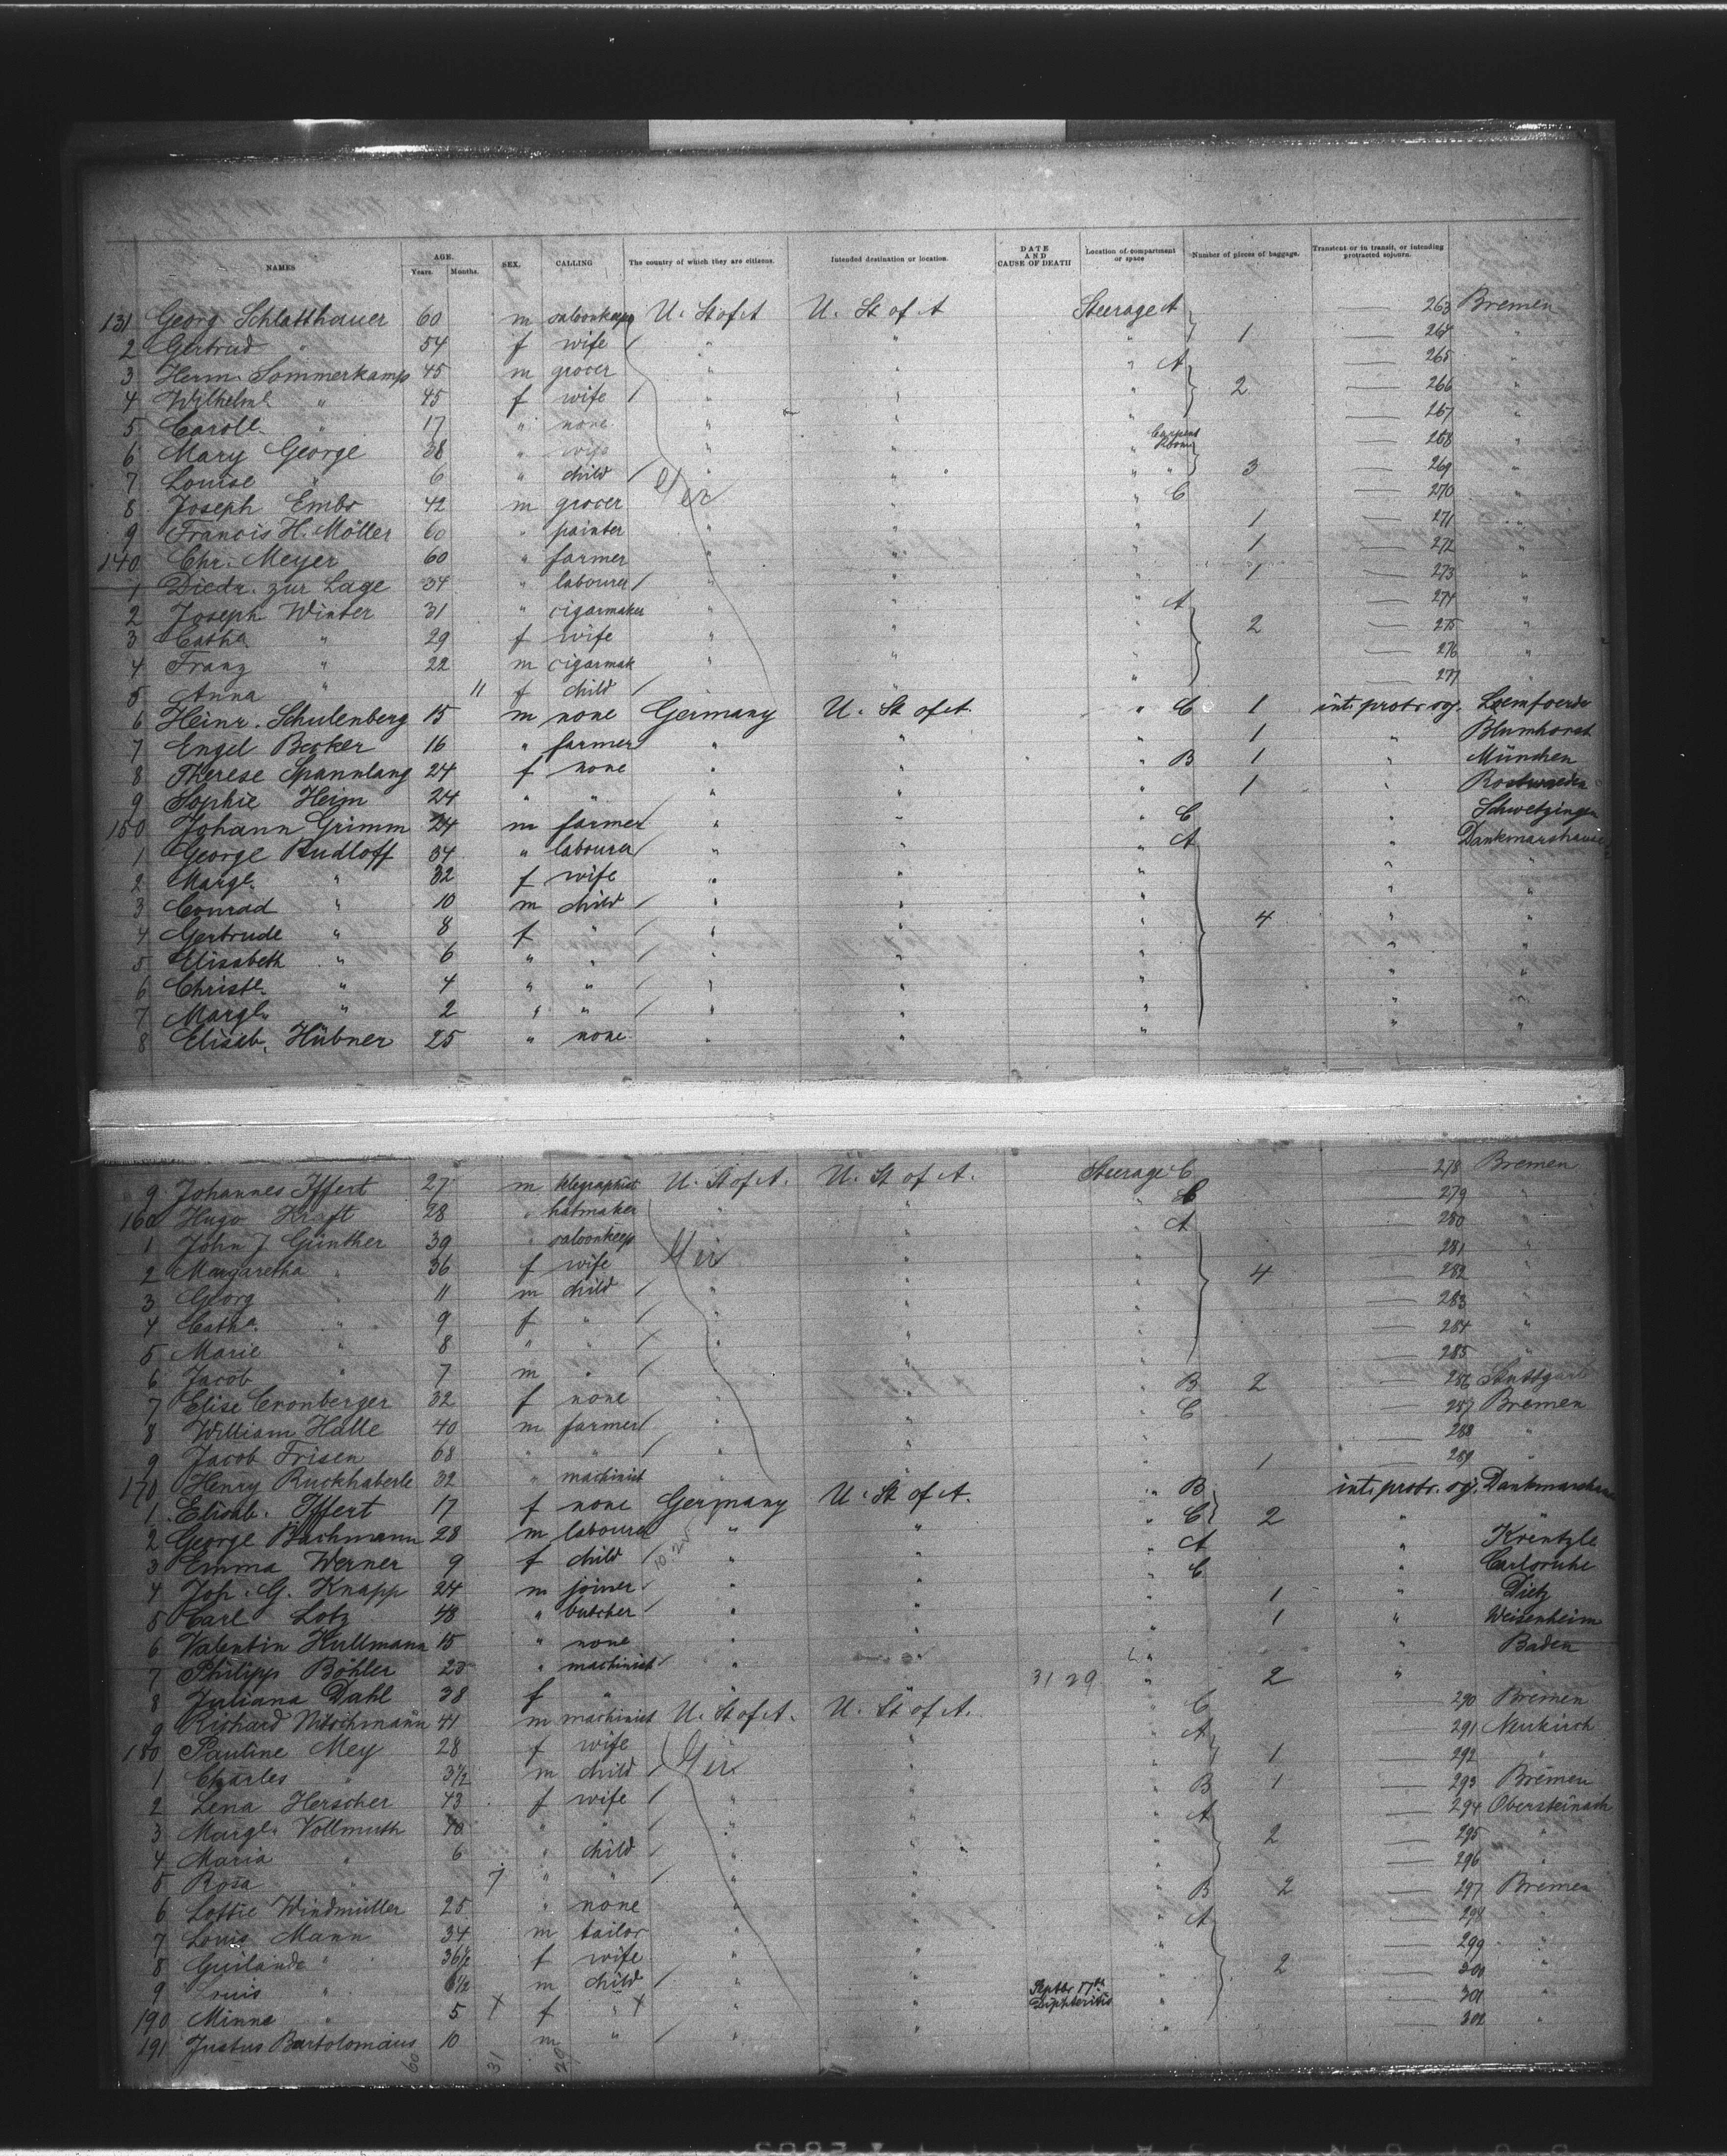 NAMES AGE. Years. Months. SEX. CALLING The country of which they are citizens. Intended destination or location. DATE AND CAUSE OF DEATH Location of compartment or space Number of pieces of baggage. Transient or in transit, or intending protracted sojourn.
131 Georg Schlatthauer 60 m saloonkeep U. St of A U. St of A Steerage A 263 Bremen
2 Gertrud " 54 f wife / " " " 1 264 "
3 Herm. Sommerkamp 45 m grocer " " " A 265
4 Wilhelme " 45 f wife / " " " 2 266 "
5 Carole " 17 " none " " " 267 "
6 Mary George 38 " wife " " 268 "
7 Louise " 6 " child / " " " " 3 269 "
8 Joseph Embs 42 m grocer Ger " " C 270 "
9 Francis H. Möller 60 " painter " " " 1 271 "
140 Chr. Meyer 60 " farmer " " " 1 272 "
1 Diedr. zur Lage 34 " labourer / " " " 1 273 "
2 Joseph Winter 31 " cigarmaker " " " A 274 "
3 Catha " 29 f wife " " " 2 275 "
4 Franz " 22 m cigarmak " " " 276 "
5 Anna " 11 f child / " " 277
6 Heinr. Schulenberg 15 m none Germany U. St of A. " C 1 int. protr. soj. Lemfoerde
7 Engel Becker 16 " farmer " " 1 " Blumhorst
8 Therese Spannlang 24 f none " " " B 1 " München
9 Sophie Heim 24 " " / " " 1 "
150 Johann Grimm 24 m farmer " " " C " Schwetzingen
1 George Rudloff 34 " labourer / " " " A " Dankmarshausen
2 Margt. " 32 f wife " " " " "
3 Conrad " 10 m child / " " " " "
4 Gertrude " 8 f " / " " " 4 " "
5 Elisabeth " 6 " " / " " " " "
6 Christe. " 4 " " / " " " " "
7 Margt. " 2 " " / " " " " "
8 Elisab. Hübner 25 " none " " " " "
9 Johannes Iffert 27 m telegraphist U. St of A. U. St of A. Steerage C 278 Bremen
160 Hugo Kraft 28 " hatmaker " " 279 "
1 John J. Günther 39 " saloonkeep " A 280 "
2 Margaretha " 36 f wife Ger " " 281 "
3 Georg " 11 m child / " " 4 282 "
4 Catha " 9 f " / " " 283
5 Marie " 8 " " / " " 284 "
6 Jacob " 7 m " / " " 285 "
7 Elise Cronberger 32 f none " " " B 2 286 Stuttgart
8 William Halle 40 m farmer / " " " C 287 Bremen
9 Jacob Frisen 68 " " / " " " 288 "
170 Henry Ruckhaberle 32 " machinist " " " 1 289 "
1 Elisab. Iffert 17 f none Germany U. St of A. " B int. protr. soj. Dankmarshause
2 George Bachmann 28 m labourer " " " C 2 "
3 Emma Werner 9 f child / " " " A "
4 Joh. G. Knapp 24 m joiner " " " C " Carlsruhe
5 Carl Lotz 48 " butcher / " " " 1 " Dietz
6 Valentin Kullmann 15 " none " " " 1 " Weisenheim
7 Philipp Böhler 23 " machinist / " " " Baden
8 Juliana Dahl 38 f " " 31 29 " 2 " "
9 Richard Nitschmann 41 m machinist U. St of A. U. St of A. C 290 Bremen
180 Pauline Mey 28 f wife " " A 291 Neukirch
1 Charles " 3½ m child / Ger " " 1 292 "
2 Lena Herscher 43 f wife / " " " B 1 293 Bremen
3 Margt. Vollmuth 40 " " / " " " A 294 Obersteinach
4 Maria " 6 " child / " " " 2 295 "
5 Rosa " 7 " " / " " " 296 "
6 Lottie Windmüller 25 " none " " " B 2 297 Bremen
7 Louis Mann 34 m tailor " " " A 298 "
8 " 36½ f wife " " " 299 "
9 Louis " 6½ m child / " " " 2 300
190 Minna " 5 X f " X " " Septbr 17th Diphteritis " 301 "
191 Justus Bartolomäus 10 m " / " " " 302 "
60 31 29